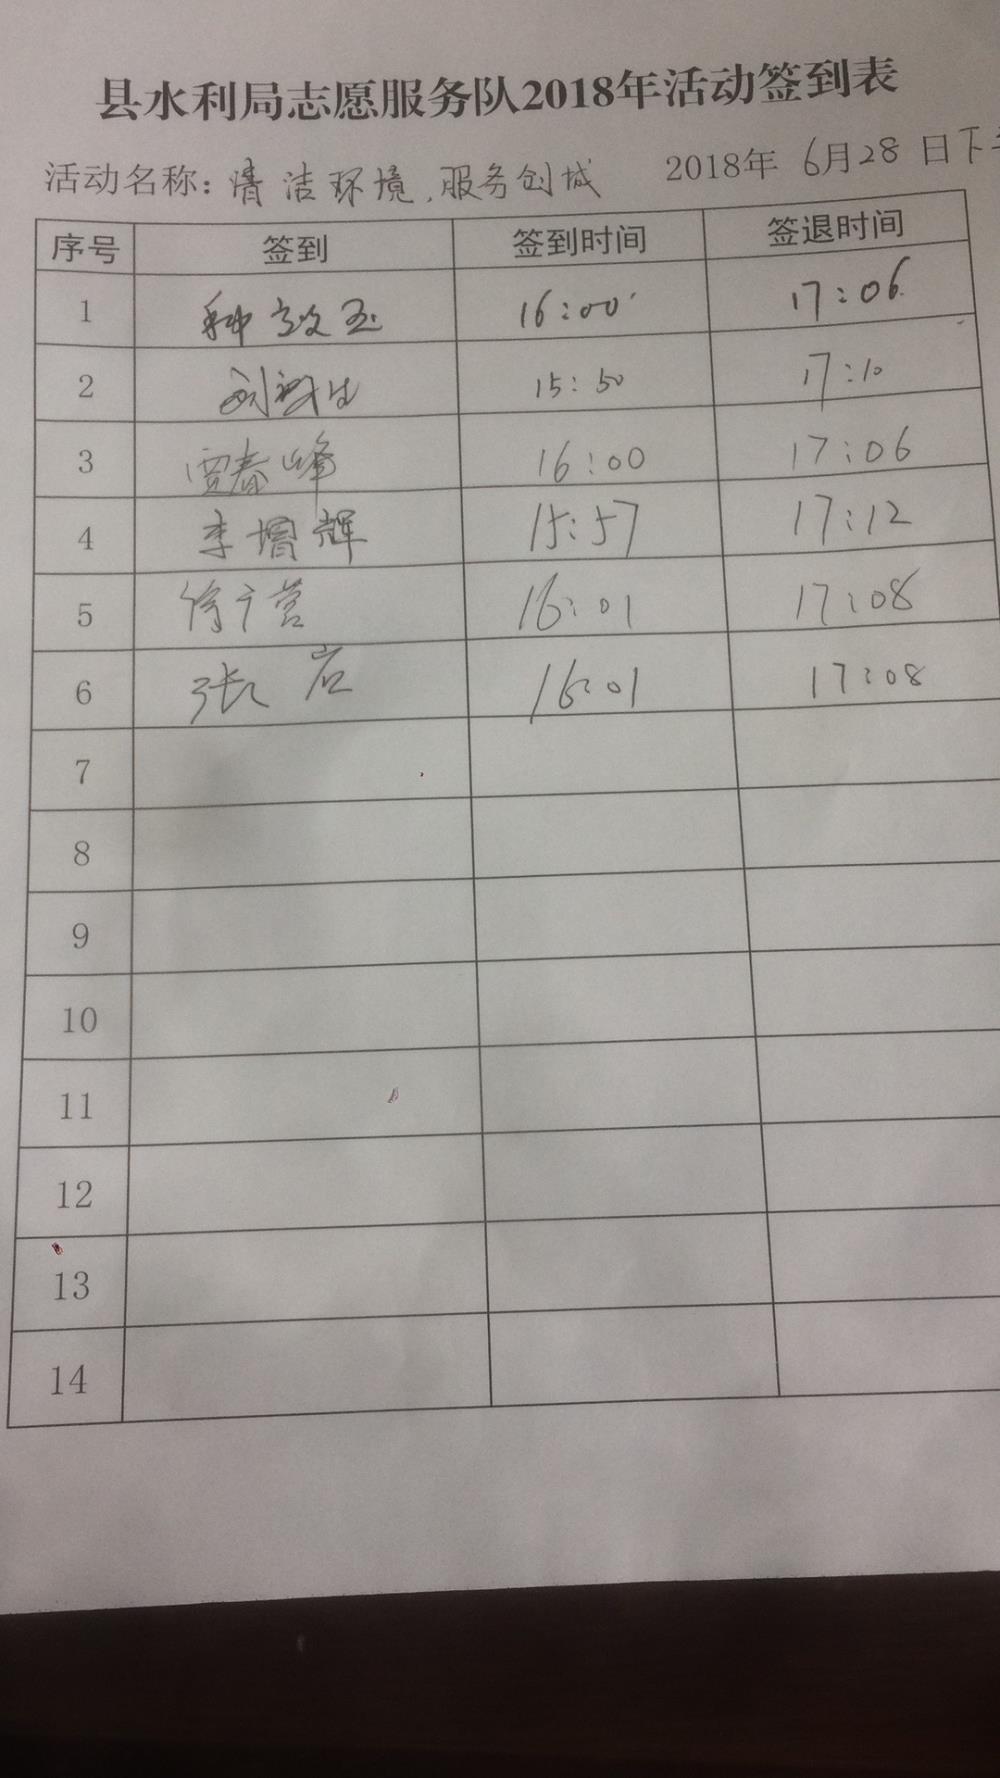 县水利局志愿服务队2018年活动签到表
活动名称：清洁环境，服务创城 2018年 6月28日下
序号 签到 签到时间 签退时间
1 种效玉 16:00 17:06
2 刘 15:50 17:10
3 贾春峰 16:00 17:06
4 李增辉 15:57 17:12
5 徐广营 16:01 17:08
6 张岩 16:01 17:08
7
8
9
10
11
12
13
14